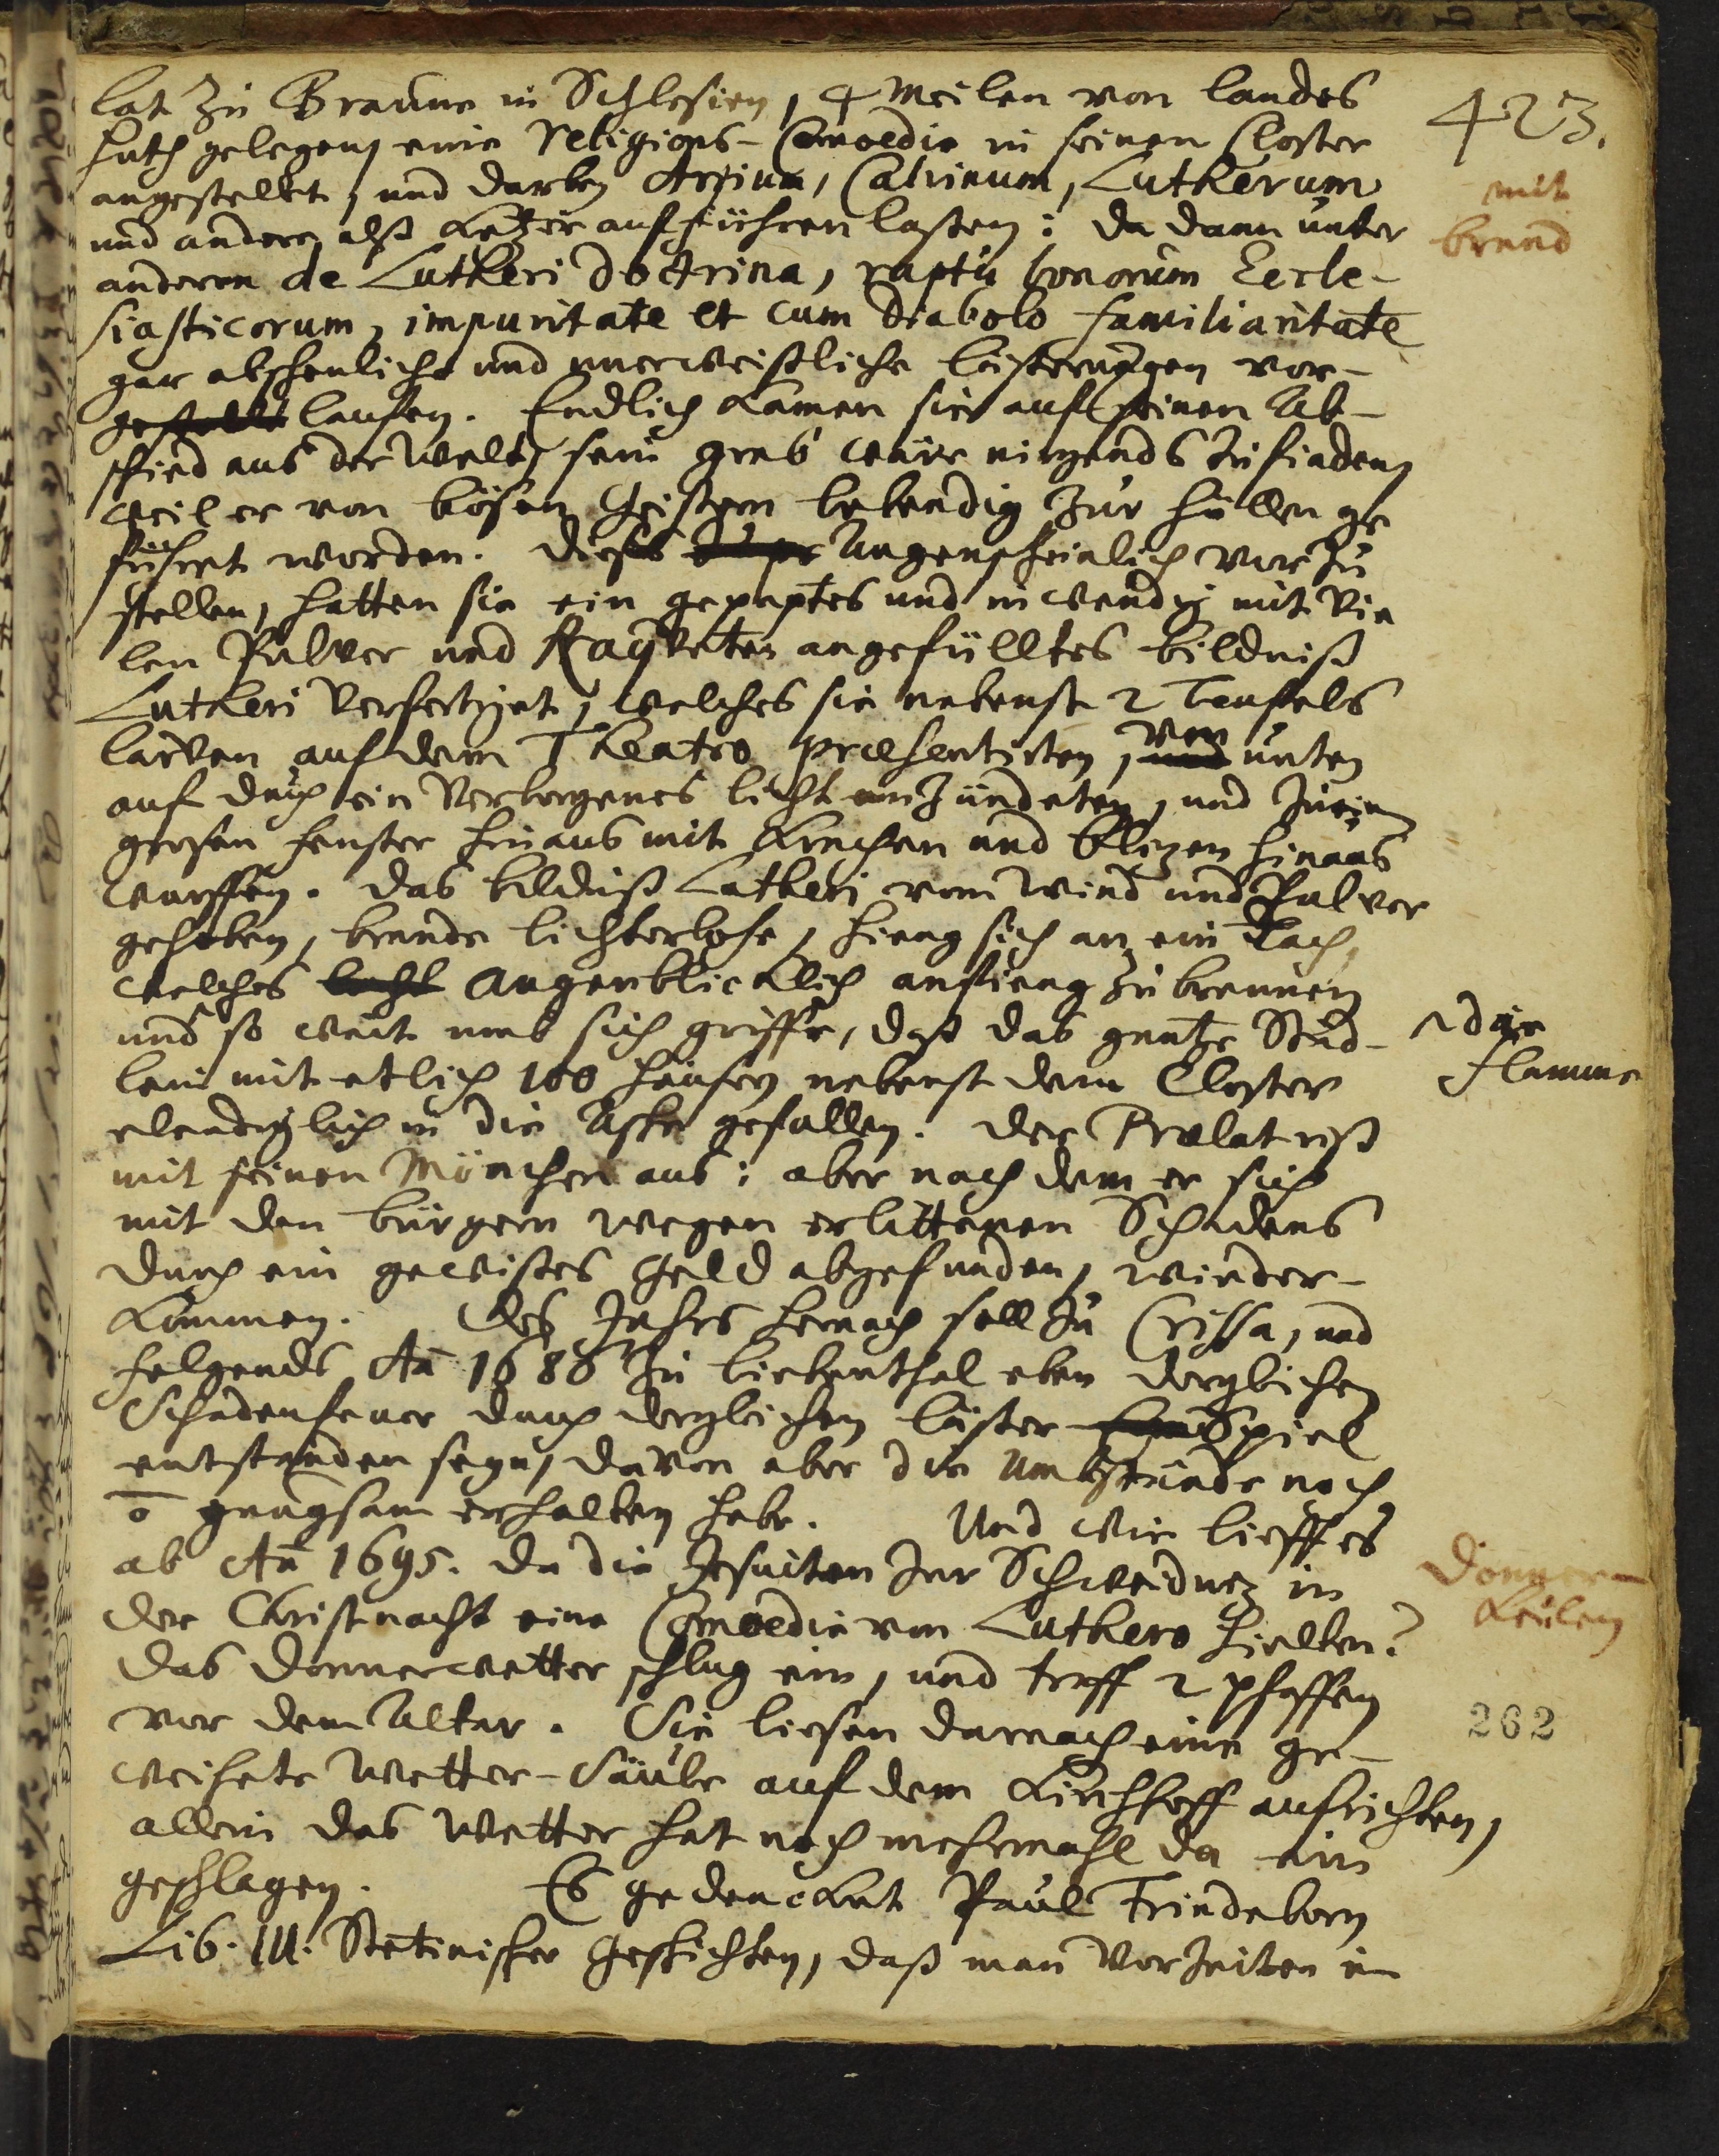 423.
lat zu Braune in Schlesien, 4 Meilen von Landes
huth gelegen, eine Religions-Comoedie in seinem Closter
angestellet, und darbey Arrium, Calvinum, Lutherum
und andere alß Ketzer aufführen lassen: da dann unter
mit
brand
anderem de Lutheri Doctrina, raptu bonorum Eccle-
siasticorum, impuritate et cum Diabolo familiaritate
gar abscheuliche und unerweißliche lästerungen vor-
gestellt lauffen. Endlich kamen sie auf seinen Ab-
schied aus der Welt, sein grab wäre nirgends zu finden,
weil er von bösen Geistern lebendig zur Höllen ge
führet worden. Dieses Augenscheinlich vor zu
stellen, hatten sie ein gepaptes und inwendig mit vie
len Pulver und Raqueten angefülltes bildniß
Lutheri verfertiget, welches sie nebenst 2 Teufels
larven auf dem Theatro præsentirten, und von unten
auf durch ein verborgenes licht anzündeten, und zu ein
grosen fenster hinaus mit krachen und blizen hinaus
wurffen. Das bildniß Lutheri vom Wind und Pulver
gehoben, brande lichterlohe, hieng sich an ein Dach,
welches Augenblicklich anfieng zu brennen
und so weit umb sich griffe, daß das gantze Städ-
die
flamme
lein mit etlich 100 häusern nebenst dem Closter
elendiglich in die Asche gefallen. Der Prælat riß
mit seinen Mönchen aus: aber nach dem er sich
mit den bürgern wegen erlittenen Schadens
durch ein gewisses Geld abgefunden, wieder-
kommen. Des Jahrs hernach soll zu Crissa, und
folgends Aõ 1688 zu Liebenthal eben dergleichen
Schadenfeuer durch dergleichen läster- Spiel
entstanden seyn, davon aber die Umbstände noch
o gnugsam erhalten habe. Und wie lieff es
ab Aõ 1695. da die Jesuiten zur Schweidnez in
Donner-
Keulen
der Christnacht eine Comoedie von Luthero hielten?
das Donnerwetter schlug ein, und traff 2 Pfaffen
vor dem Altar. Sie liesen darnach eine ge-
262
weihete Wetter-Säule auf dem Kirchhoff aufrichten,
allein das Wetter hat noch mehrmahl da ein
geschlagen. Es gedencket Paul Friedeborn
Lib. III. Stetinischer Geschichten, daß man vor Zeiten im